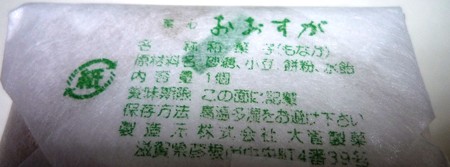 菓心 おおすが
名 称 和 菓 子(もなか)
原材料名 砂糖、小豆、餅粉、水飴
内 容 量 1個
賞味期限 この面に記載
保存方法 高温多湿をお避け下さい
製 造 元 株式会社 大菅製菓
滋賀県彦根市中央町4番39号
紙